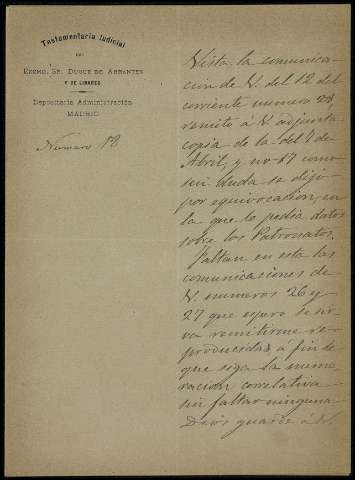 Testamentaria Judicial
DEL
EXCMO. SR. DUQUE DE ABRANTES
Y DE LINARES
Depositaría Administración
MADRID
Número 18
Vista la comunica-
cion de V. del 12 del
corriente numero 28,
remito á V. adjunta
copia de la del 7 de
Abril, y no 17 como
sin duda se dijo
por equivocacion, en
la que le pedia datos
sobre los Patronatos.
Faltan en esta las
comunicasiones de
V. numeros 26 y
27 que espero se sir-
va remitirme re-
producidas á fin de
que siga la nume-
racion correlativa
sin faltar ninguna
Dios guarde á V.